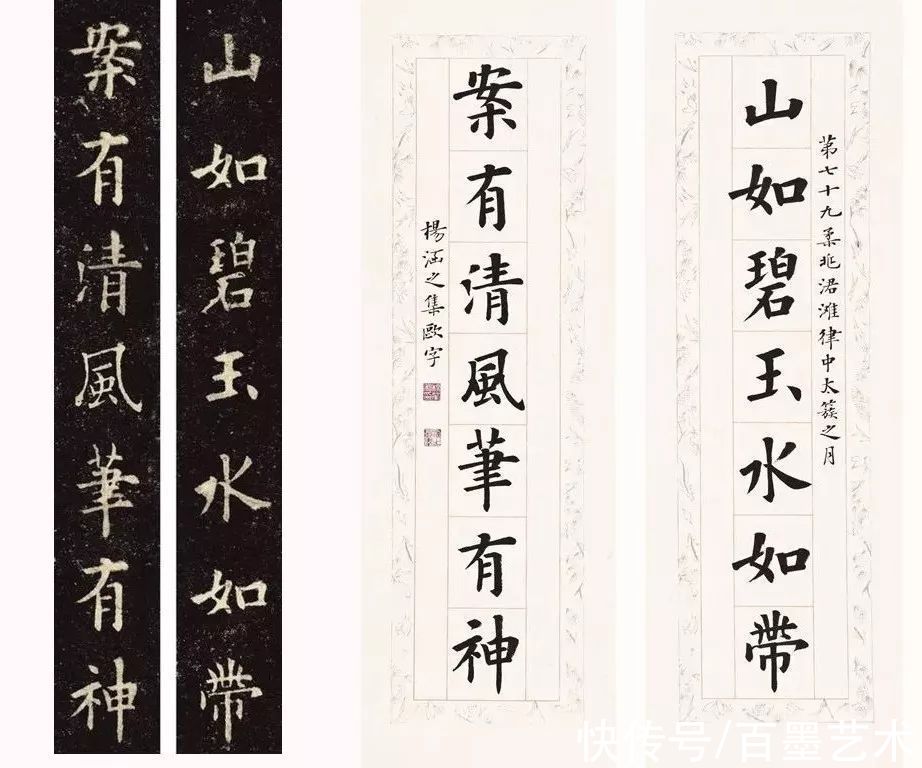 第七十九柔兆涒灘律中太簇之月
山如碧玉水如帶
案有清風筆有神
楊涵之集歐字
山如碧玉水如帶
案有清風筆有神
快传号/百墨艺术